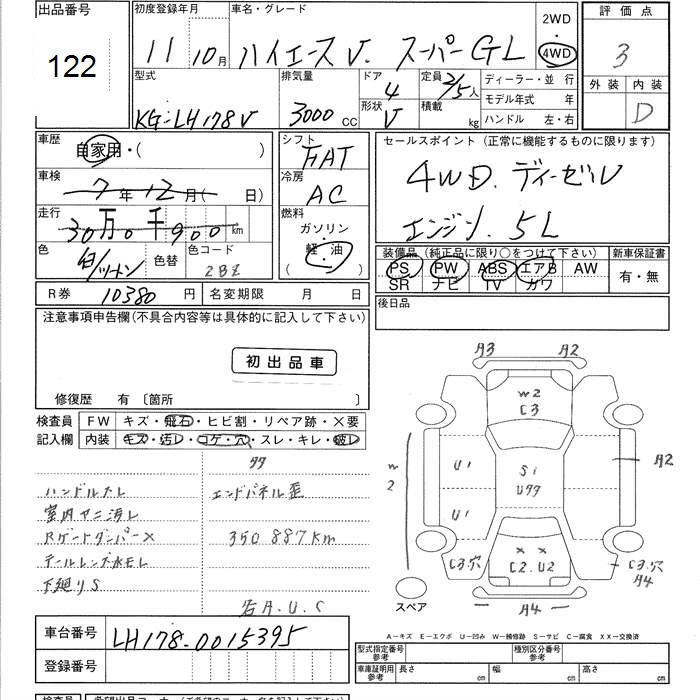 出品番号
122
初度登録年月
11 10月
車名・グレード
ハイエースV. スーパーGL
2WD
4WD
評価点
3
外装 内装
D
型式
KG-LH178V
排気量
3000 CC
ドア
4
形状
V
定員 2/5人
積載 kg
ディーラー・並 行
モデル年式 年
ハンドル 左・右
車歴
自家用・( )
シフト
FAT
車検
7年12月( 日)
冷房
AC
走行
30万0千900km
燃料
ガソリン
軽・油
( )
色
白/ツートン
色替
色コード
2BZ
R券 10380円
名変期限 月 日
セールスポイント(正常に機能するものに限ります)
4WD.ディーゼル
エンジン.5L
装備品(純正品に限り○をつけて下さい)
PS PW ABS エアB AW
SR ナビ TV カワ
新車保証書
有・無
後日品
注意事項申告欄(不具合内容等は具体的に記入して下さい)
初出品車
修復歴 有〔箇所 〕
検査員
記入欄
FW キズ・飛石・ヒビ割・リペア跡・×要
内装 キズ・汚レ・コゲ・穴・スレ・キレ・破レ
タタ
ハンドルスレ
エンドパネル歪
室内ヤニ汚レ
Rゲートダンパー×
350887km
テールレンズ水モレ
下廻りS
右A.U.C
A3 A2
W2
C3
W2
U1
S1
Uタタ
A2
U1
× ×
C2.U2
C3.穴
C3.穴
A4
A4
スペア
A−キズ E−エクボ U−凹み W−補修跡 S−サビ C−腐食 XX−交換済
車台番号 LH178-0015395
登録番号
型式指定番号
参考
種別区分番号
参考
車庫証明用
参考
長さ cm
幅 cm
高さ cm
検査員